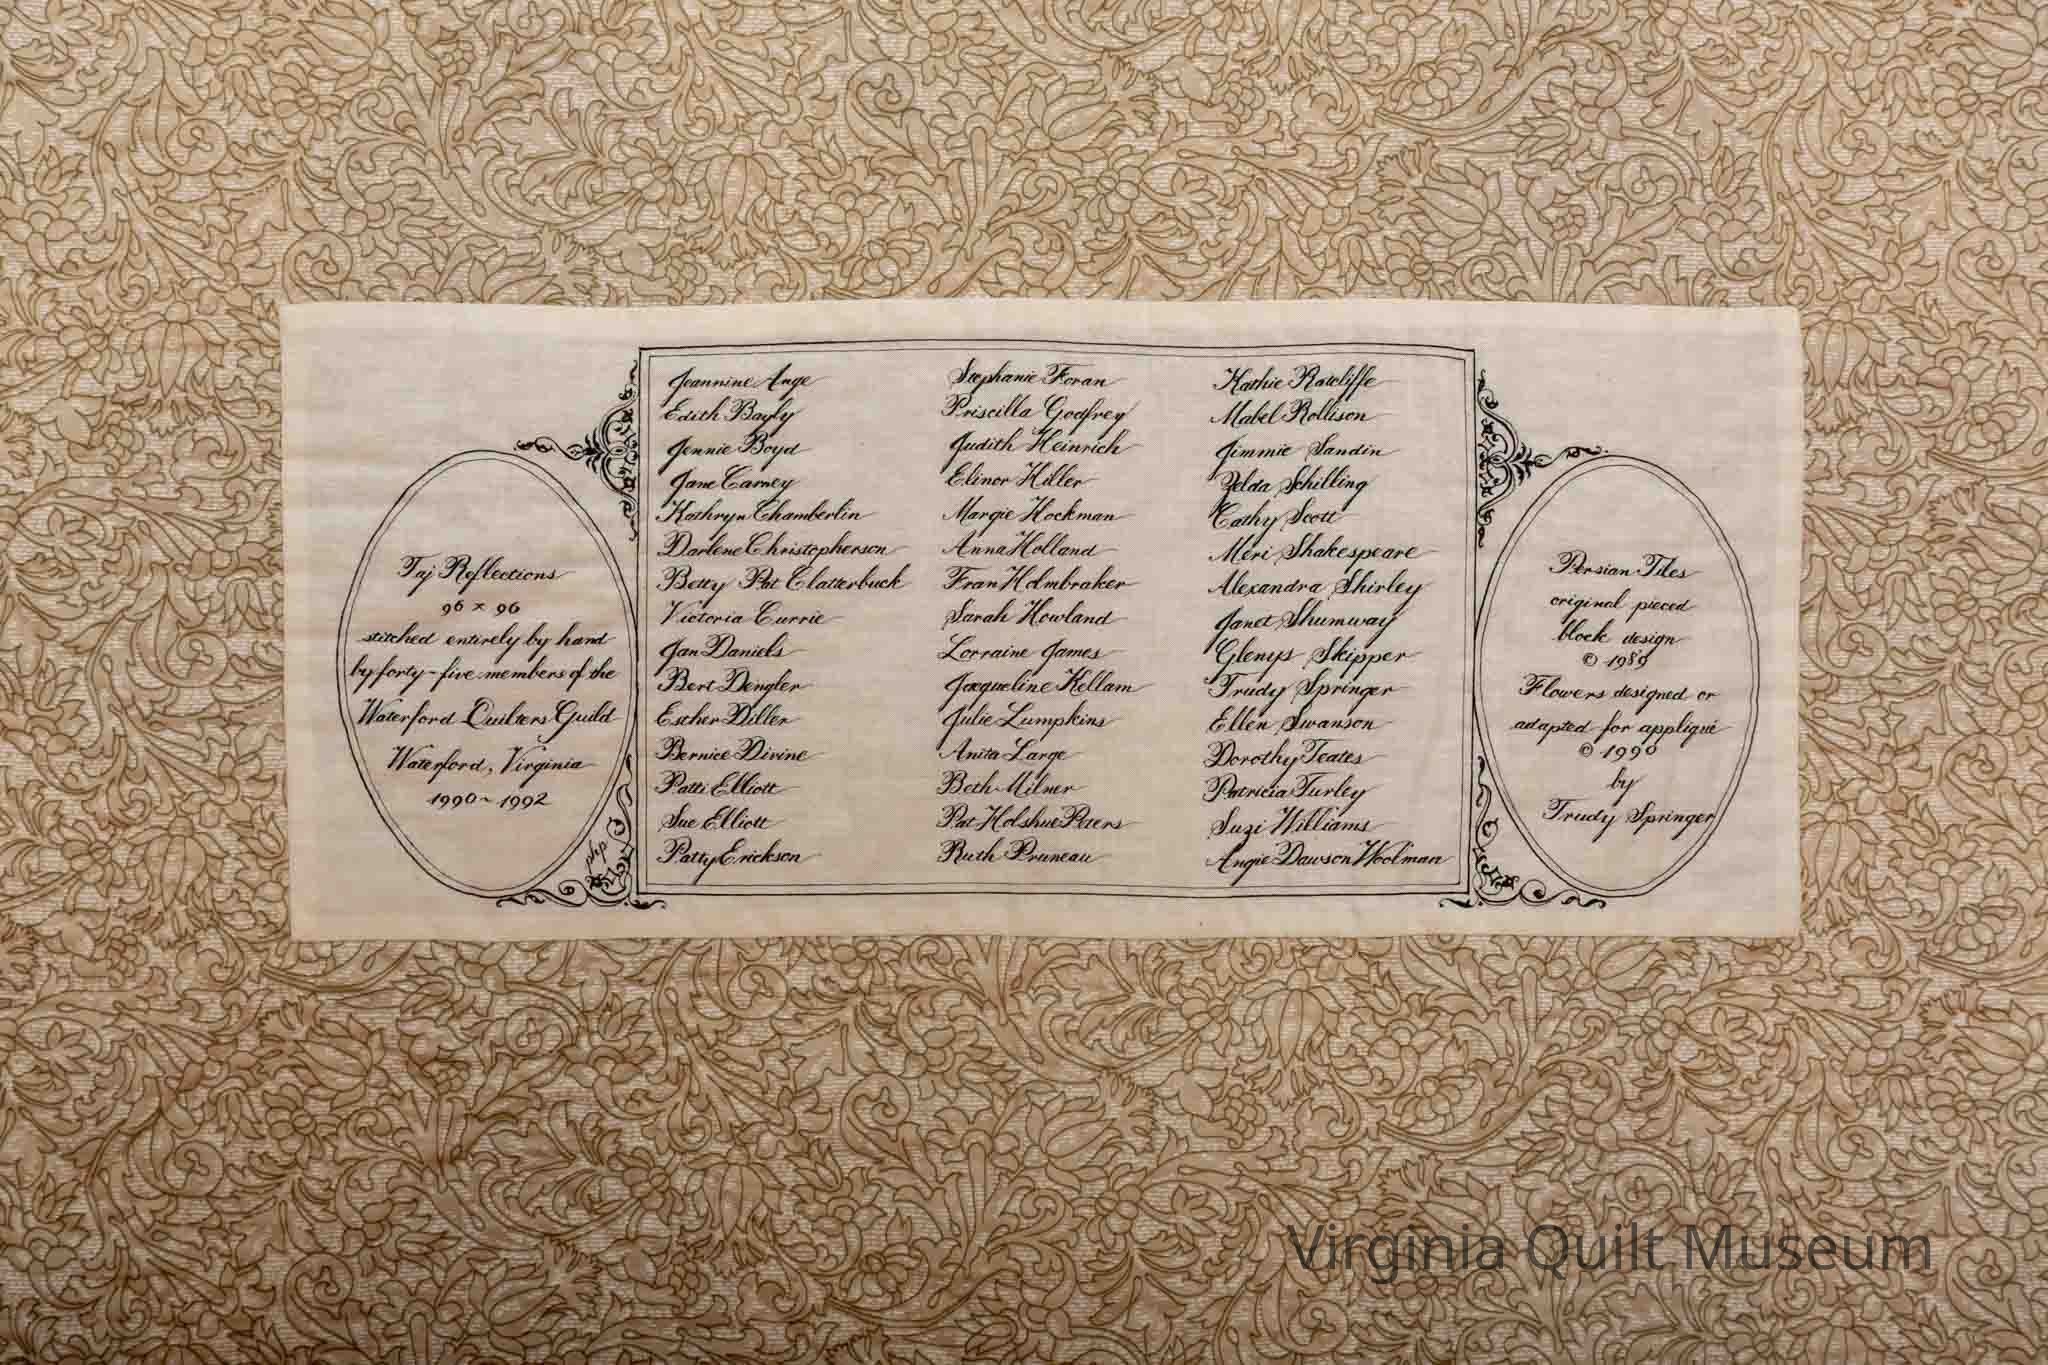 Taj Reflections
96 x 96
stitched entirely by hand
by forty-five members of the
Waterford Quilters Guild
Waterford, Virginia
1990~1992
php
Jeannine Ange
Edith Bayly
Jennie Boyd
Jane Carney
Kathryn Chamberlin
Darlene Christopherson
Betty Pat Clatterbuck
Victoria Currie
Jan Daniels
Bert Dengler
Esther Diller
Bernice Divine
Patti Elliott
Sue Elliott
Patty Erickson
Stephanie Foran
Priscilla Godfrey
Judith Heinrich
Elinor Hiller
Margie Hockman
Anna Holland
Fran Holmbraker
Sarah Howland
Lorraine James
Jacqueline Kellam
Julie Lumpkins
Anita Large
Beth Milner
Pat Holshue Peters
Ruth Pruneau
Kathie Ratcliffe
Mabel Rollison
Jimmie Sandin
Zelda Schilling
Cathy Scott
Meri Shakespeare
Alexandra Shirley
Janet Shumway
Glenys Skipper
Trudy Springer
Ellen Swanson
Dorothy Teates
Patricia Turley
Suzi Williams
Angie Dawson Woolman
Persian Tiles
original pieced
block design
© 1989
Flowers designed or
adapted for appliqué
© 1990
by
Trudy Springer
Virginia Quilt Museum